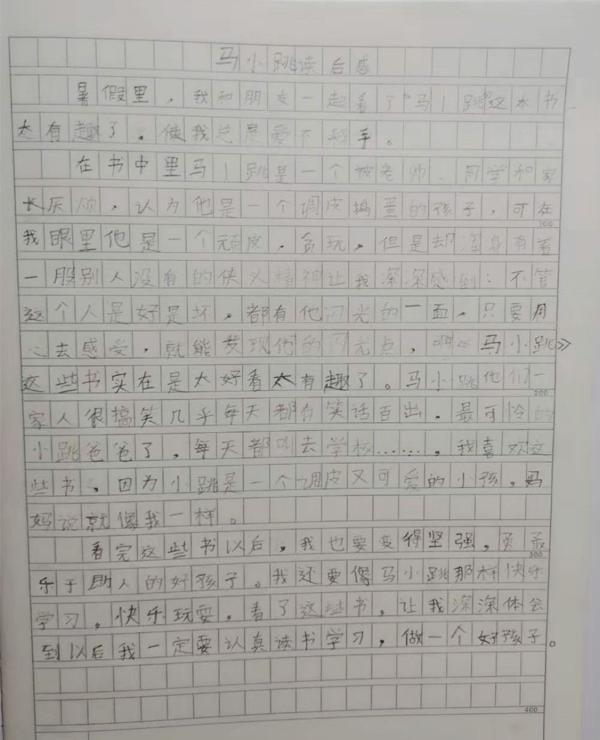 马小跳读后感
暑假里，我和朋友一起看了"马小跳"这本书
太有趣了。使我总是爱不释手。
在书中里马小跳是一个被老师、同学和家
长厌烦，认为他是一个调皮捣蛋的孩子，可在
300
我眼里他是一个顽皮，贪玩，但是却浑身有着
一股别人没有的侠义精神让我深深感到：不管
这个人是好是坏，都有他闪光的一面，只要用
心去感受，就能发现他的闪光点，马小跳》
这些书实在是太好看太有趣了。马小跳他们一
200
家人很搞笑几乎每天都有笑话百出。最可怜的
小跳爸爸了，每天都叫去学校……，我喜欢这
些书，因为小跳是一个调皮又可爱的小孩。妈
妈说就像我一样。
看完这些书以后，我也要变得坚强，勇敢
300
乐于助人的好孩子。我还要像马小跳那样快乐
学习，快乐玩耍，看了这些书，让我深深体会
到以后我一定要认真读书学习，做一个好孩子。
400